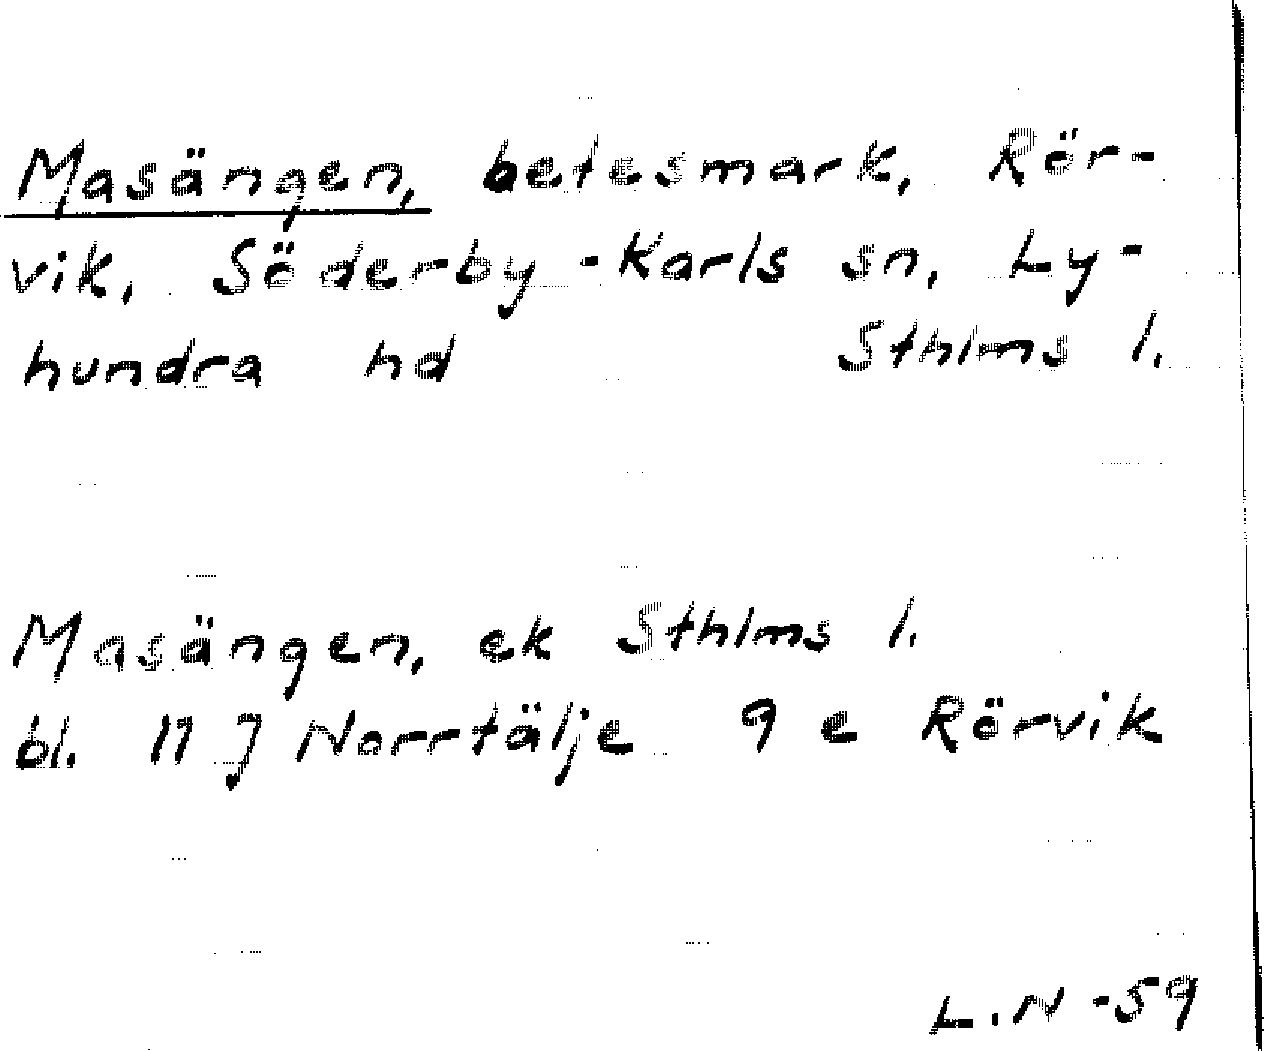 Masängen, betesmark, Rör-
vik, Söderby-Karls sn, Ly-
hundra hd Sthlms l.
Masängen, ek Sthlms l.
bl. 11 J Norrtälje 9 e Rörvik
L.N -59